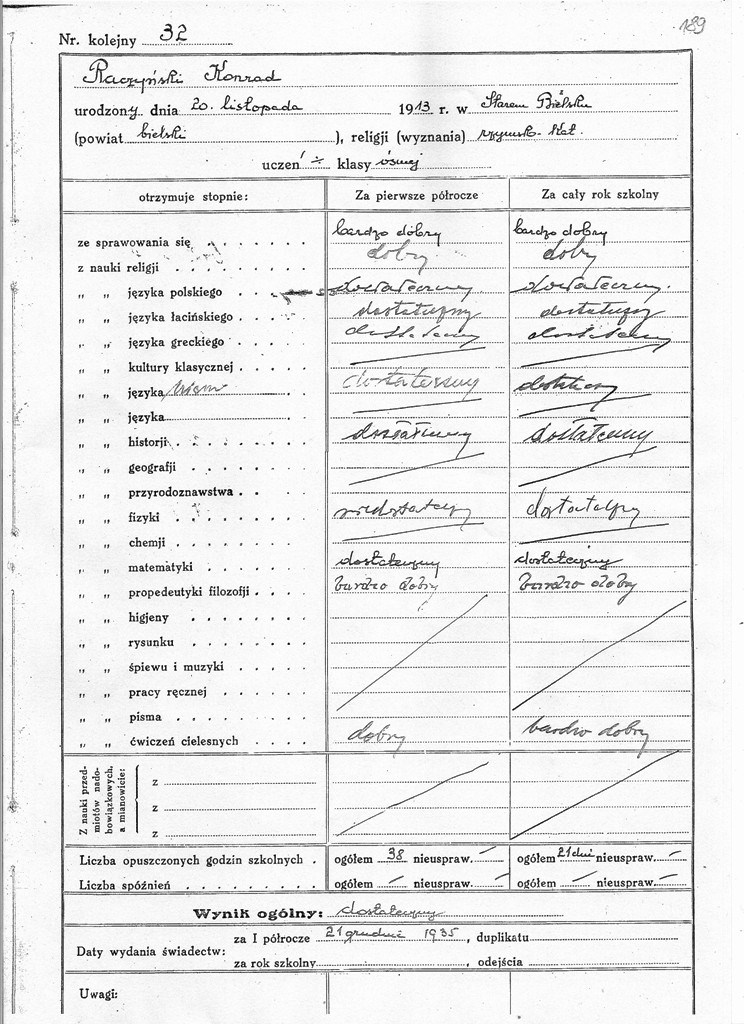 189
Nr. kolejny 32
Raczyński Konrad
urodzony dnia 20. listopada 1913 r. w Starem Bielsku
(powiat bielski), religji (wyznania) rzymsko-kat.
uczeń ÷ klasy ósmej
otrzymuje stopnie: Za pierwsze półrocze Za cały rok szkolny
ze sprawowania się bardzo dobry bardzo dobry
z nauki religji dobry dobry
„ „ języka polskiego dostateczny dostateczny.
„ „ języka łacińskiego dostateczny dostateczny
„ „ języka greckiego dostateczny dostateczny
„ „ kultury klasycznej
„ „ języka niem dostateczny dostateczny
„ „ języka
„ „ historji dostateczny dostateczny
„ „ geografji
„ „ przyrodoznawstwa
„ „ fizyki niedostateczny dostateczny
„ „ chemji
„ „ matematyki dostateczny dostateczny
„ „ propedeutyki filozofji bardzo dobry bardzo dobry
„ „ higjeny
„ „ rysunku
„ „ śpiewu i muzyki
„ „ pracy ręcznej
„ „ pisma
„ „ ćwiczeń cielesnych dobry bardzo dobry
Z nauki przed-
miotów nado-
bowiązkowych,
a mianowicie:
z
z
z
Liczba opuszczonych godzin szkolnych ogółem 38 nieuspraw. — ogółem 21 dni nieuspraw. —
Liczba spóźnień ogółem — nieuspraw. — ogółem — nieuspraw. —
Wynik ogólny: dostateczny
Daty wydania świadectw: za I półrocze 21 grudnia 1935, duplikatu
za rok szkolny, odejścia
Uwagi: